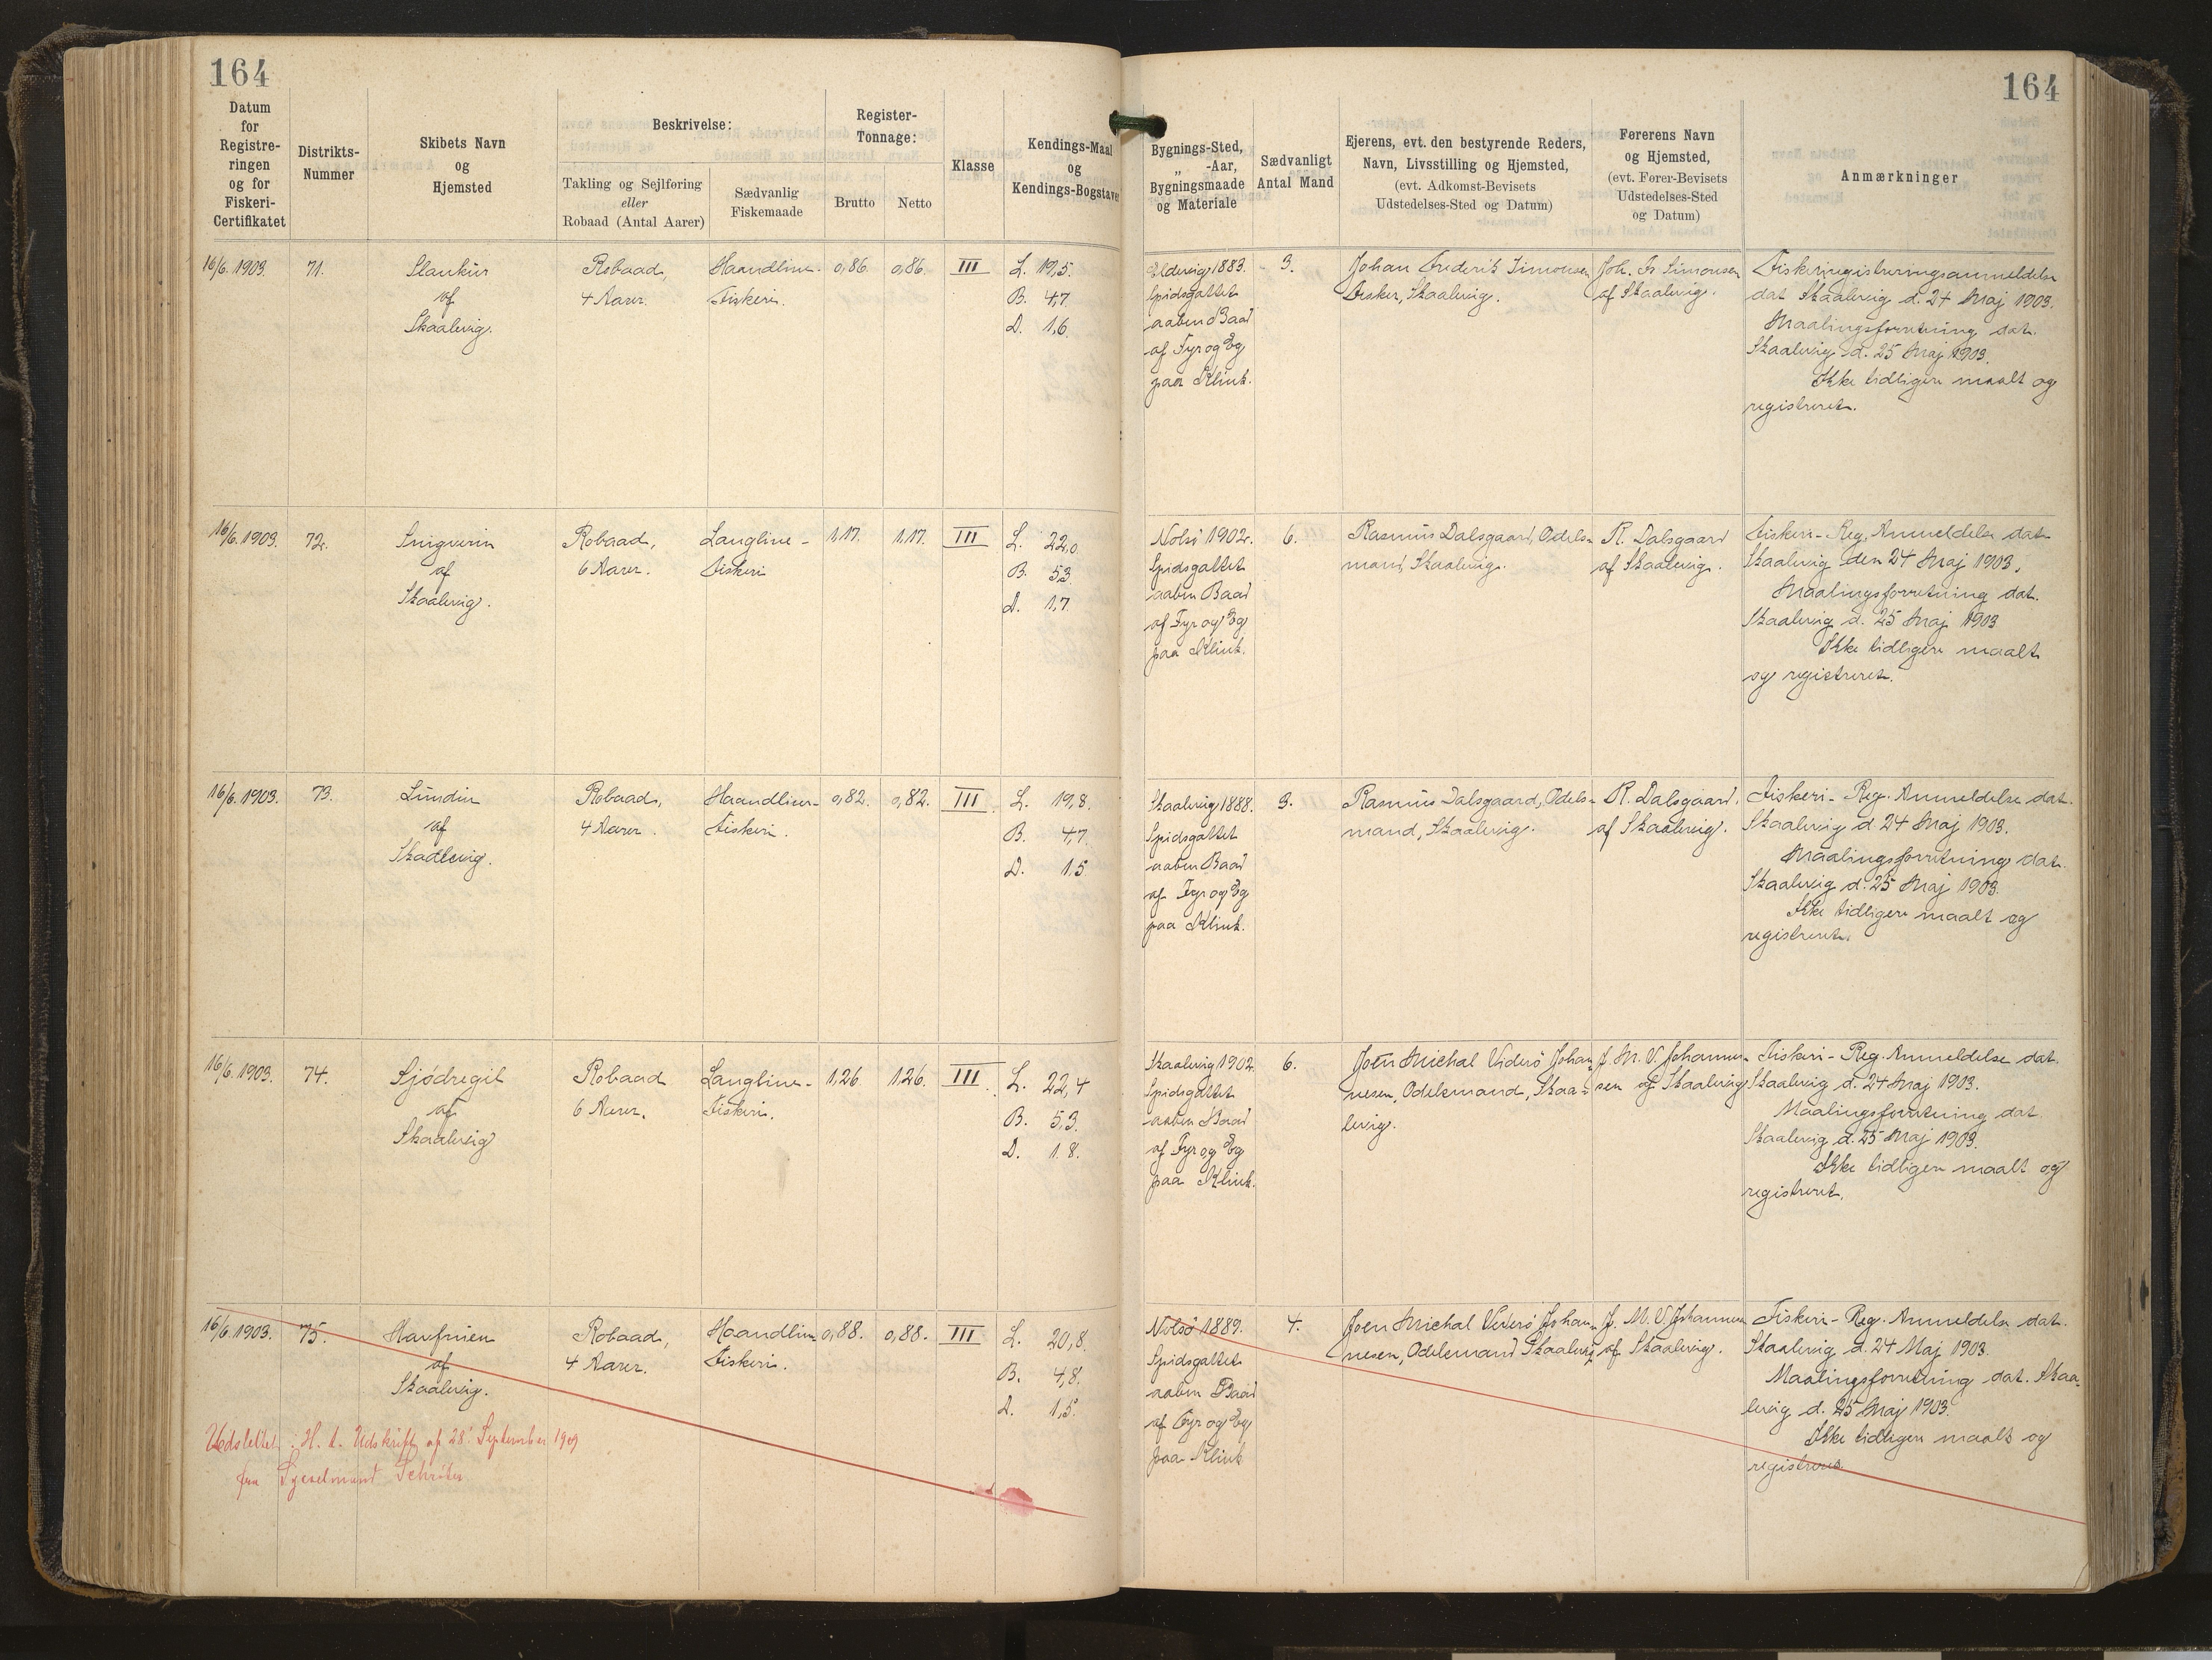 164
164
Datum
for
Registre-
ringen
og for
Fiskeri-
Certifikatet
Distrikts-
Nummer
Skibets Navn
og
Hjemsted
Beskrivelse:
Takling og Sejlføring
eller
Robaad (Antal Aarer)
Sædvanlig
Fiskemaade
Register-
Tonnage:
Brutto
Netto
Klasse
Kendings-Maal
og
Kendings-Bogstaver
Bygnings-Sted,
„ -Aar,
Bygningsmaade
og Materiale
Sædvanligt
Antal Mand
Ejerens, evt. den bestyrende Reders,
Navn, Livsstilling og Hjemsted,
(evt. Adkomst-Bevisets
Udstedelses-Sted og Datum)
Førerens Navn
og Hjemsted,
(evt. Fører-Bevisets
Udstedelses-Sted
og Datum)
Anmærkninger
16/6. 1903.
71.
Slankur
af
Skaalevig.
Robaad,
4 Aarer.
Haandline-
Fiskeri.
0,86.
0,86.
III
L. 19,5.
B. 4,7
D. 1,6
1883.
Spidsgattet
aaben Baad
af Fyr og Eg
paa Klink.
3.
Johan Frederik Simonsen
Fisker, Skaalevig.
Joh. Fr Simonsen
af Skaalevig.
Fiskeriregistreringsanmeldelse
dat Skaalevig d. 24 Maj 1903.
Maalingsforretning dat.
Skaalevig d. 25 Maj 1903.
Ikke tidligere maalt og
registreret.
16/6. 1903.
72.
af
Skaalevig.
Robaad,
6 Aarer.
Langline-
Fiskeri
1,17.
1,17.
III
L. 22,0
B. 5,3
D. 1,7
Nolsö 1902.
Spidsgattet
aaben Baad
af Fyr og Eg
paa Klink.
6.
Rasmus Dalsgaard, Odels-
mand, Skaalevig.
R. Dalsgaard
af Skaalevig.
Fiskeri-Reg. Anmeldelse dat
Skaalevig den 24 Maj 1903.
Maalingsforretning dat.
Skaalevig d. 25 Maj 1903
Ikke tidligere maalt
og registreret.
16/6. 1903.
73.
Lindin
af
Skaalevig.
Robaad,
4 Aarer.
Haandline-
Fiskeri.
0,82.
0,82.
III
L. 19,8.
B. 4,7
D. 1,5
Skaalevig 1888.
Spidsgattet
aaben Baad
af Fyr og Eg
paa Klink.
3.
Rasmus Dalsgaard, Odels-
mand, Skaalevig.
R. Dalsgaard,
af Skaalevig.
Fiskeri-Reg. Anmeldelse dat.
Skaalevig d 24 Maj 1903.
Maalingsforretning dat.
Skaalevig d. 25 Maj 1903.
Ikke tidligere maalt og
registreret.
16/6. 1903.
74.
Sjódregil
af
Skaalevig
Robaad
6 Aarer.
Langline-
Fiskeri.
1,26
1,26.
III
L. 22,4
B. 5,3.
D. 1.8.
Skaalevig 1902
Spidsgattet
aaben Baad
af Fyr og Eg
paa Klink.
6.
Joen Michal Viderö Johan-
nesen, Odelsmand, Skaa-
levig.
J. M. V. Johanne-
sen af Skaalevig
Fiskeri-Reg. Anmeldelse dat.
Skaalevig d. 24 Maj 1903.
Maalingsforretning dat.
Skaalevig d. 25 Maj 1903.
Ikke tidligere maalt og
registreret.
16/6. 1903.
75.
Havfruen
af
Skaalevig.
Robaad,
4 Aarer.
Haandline
Fiskeri.
0,88.
0,88.
III
L. 20,8.
B. 4,8.
D. 1,5.
Nolsö 1889.
Spidsgattet
aaben Baad
af Fyr og Eg
paa Klink
4.
Joen Michal Viderö Johan-
nesen, Odelsmand Skaalevig
J. M. V. Johannesen
af Skaalevig.
Fiskeri-Reg. Anmeldelse dat.
Skaalevig d. 24 Maj 1903.
Maalingsforretning dat. Skaa-
levig d. 25 Maj 1903.
Ikke tidligere maalt og
registreret.
Udslettet. H. t. Udskrift af 28' September 1909
fra Sysselmand